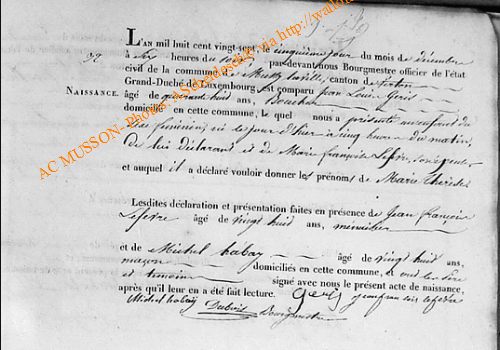 L'AN mil huit cent vingt-sept, le cinquième jour du mois de décembre
à six heures de par-devant nous Bourgmestre officier de l'état
civil de la commune de Musson la ville, canton de Virton
Grand-Duché de Luxembourg est comparu Jean Louis Geris
NAISSANCE.
âgé de quarante huit ans, Boucher
domicilié en cette commune, le quel nous a présenté un enfant du
sexe féminin, né le jour d'hier à cinq heures du matin,
de lui déclarant et de Marie françoise Lefevre, son épouse
et auquel il a déclaré vouloir donner les prénoms de Marie Therese
Lesdites déclaration et présentation faites en présence de Jean françois
Lefevre âgé de vingt huit ans, menuisier
et de Michel habay âgé de vingt huit ans,
maçon domiciliés en cette commune, et ont les père
et temoins signé avec nous le présent acte de naissance,
après qu'il leur en a été fait lecture. Geris jean francois lefevre
Michel habay Dubois Bourgmestre
AC MUSSON- Photos: A. http://walk